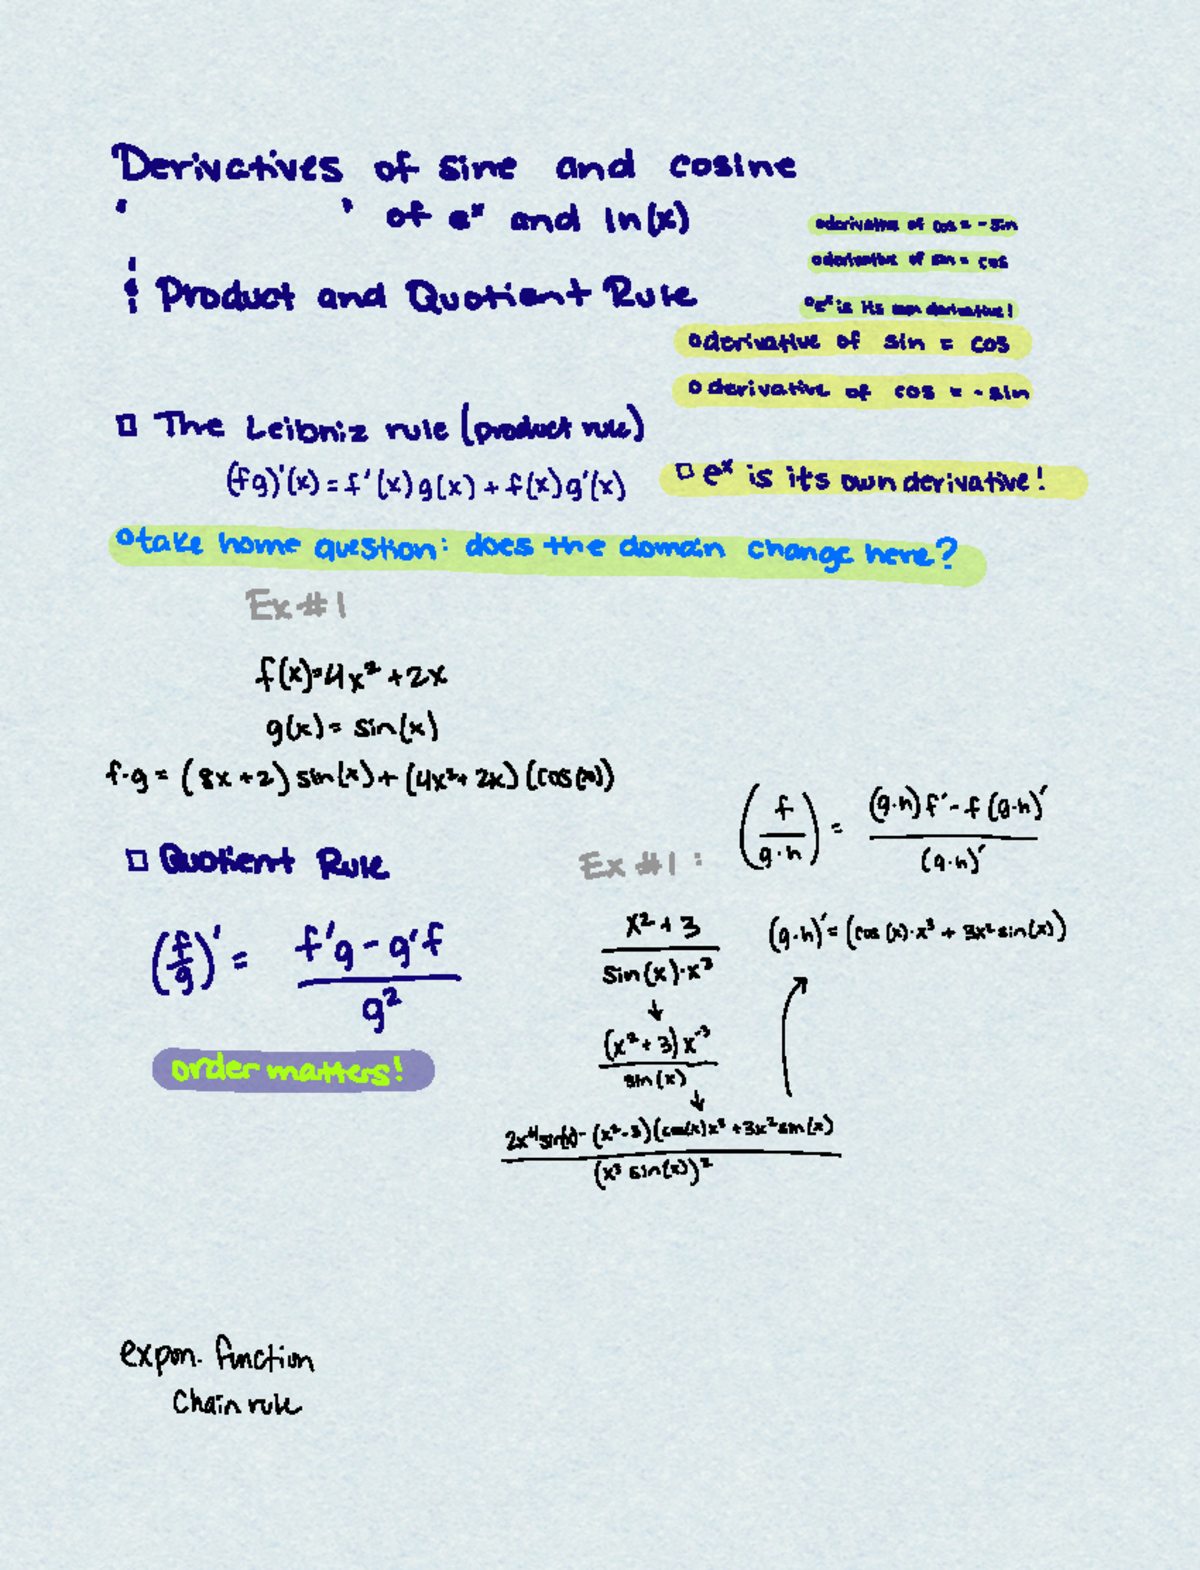 Derivatives of sine and cosine
' ' of eˣ and ln(x)
& Product and Quotient Rule
derivative of cos = -sin
derivative of sin = cos
eˣ is its own derivative!
derivative of sin = cos
derivative of cos = -sin
□ The Leibniz rule (product rule)
(fg)'(x) = f'(x)g(x) + f(x)g'(x)
□ eˣ is its own derivative!
take home question: does the domain change here?
Ex #1
f(x)=4x²+2x
g(x) = sin(x)
f·g = (8x+2) sin(x) + (4x²+2x)(cos(x))
(f/(g·h)) = ((g·h)f' - f(g·h)')/(g·h)'
□ Quotient Rule
(f/g)' = (f'g - g'f)/g²
order matters!
Ex #1:
(x²+3)/(sin(x)·x³)
(g·h)' = (cos(x)·x³ + 3x² sin(x))
↓
((x²+3)x⁻³)/sin(x)
↓
(2x⁴sin(x) - (x²-3)(cos(x)x³ + 3x² sin(x)))/(x³ sin(x))²
expon. function
Chain rule